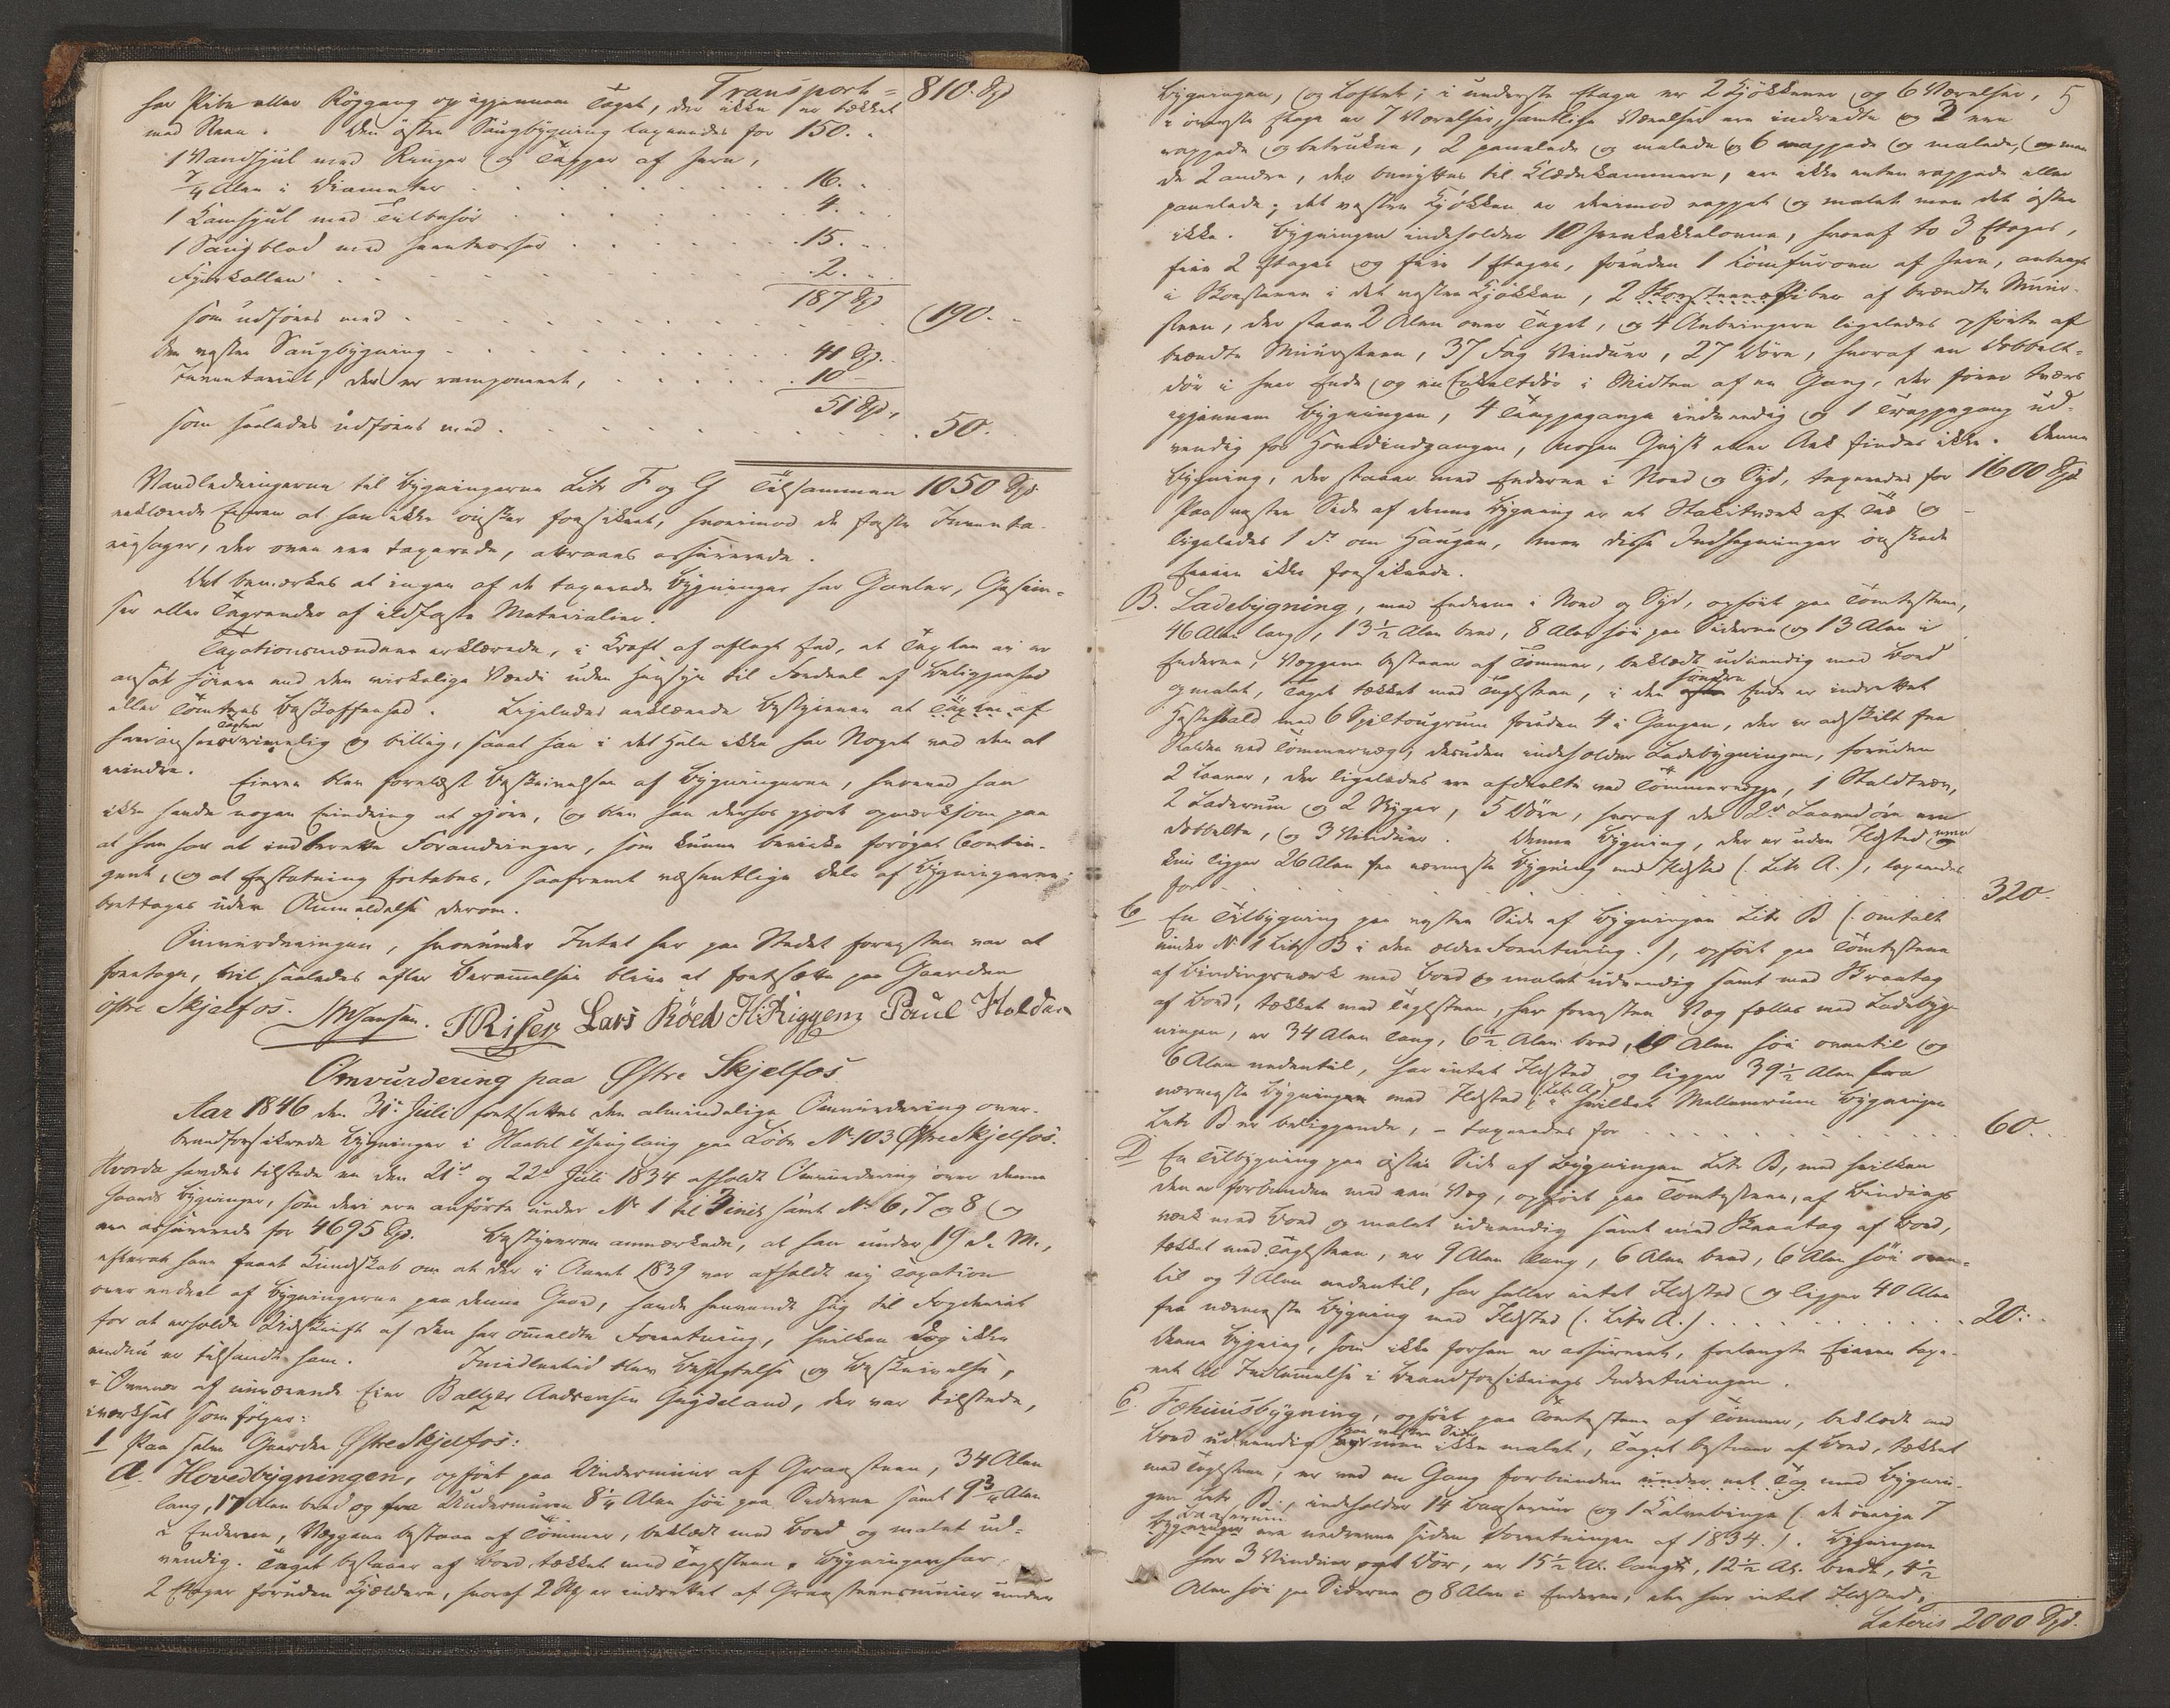 Transport = 810. Spd
har Pibe eller Röggang op igjennem Taget, der ikke er tækket
med Steen. Den östre Saugbygning taxeredes for 150. -
1 Vandhjul med Ringer og Tapper af Jern,
7/4 Alen i Diameter . . . 16. -
1 Kamhjul med Tilbehör . . . 4. -
1 Saugblad med . . . 15. -
. . . 2. -
187 Spd
som udföres med . . . 190. -
Den vestre Saugbygning . . . 41 Spd.
Inventariet, der er ramponeret, . . . 10 -
51 Spd.
som saaledes udföres med . . . 50. -
Tilsammen 1050 Spd.
Vandledningerne til Bygningerne Litr F og G
erklærede Eieren at han ikke önsker forsikret, hvorimod de faste Inventa-
riesager, der ovenere taxerede, attraaes assurerede.
Det bemærkes at ingen af de taxerede Bygninger har Gavler, Gesim-
ser eller Tagrender af ildfaste Materialier.
Taxationsmændene erklærede, i Kraft af aflagt Eed, at Taxten ei er
ansat höiere end den virkelige Værdi uden Hensyn til Fordeel af Beliggenhed
eller Tomtens Beskaffenhed. Ligeledes erklærede Bestyreren at Taxten af
ham ansaaes rimelig og billig, samt han i det Hele ikke har Noget ved den at
erindre. Eieren blev forelæst Beskrivelsen af Bygningerne, hvorved han
ikke havde nogen Erindring at gjöre, og blev han derhos gjort opmærksom paa
at han har at indberette Forandringer, som kunne bevirke foröget Contin-
gent, og at Erstatning fortabes, saafremt væsentlige Dele af Bygningerne
borttages uden Anmeldelse derom.
Omvurderingen, hvorunder Intet her paa Stedet forresten var at
foretage, vil saaledes efter Berammelsen blive at fortsætte paa Gaarden
östre Skjelfos. Jansen. Riser Lars Röed H. Riggem Paul Holdan
Omvurdering paa Østre Skjelfos
Aar 1846 den 31te Juli fortsattes den almindelige Omvurdering over
brandforsikrede Bygninger i Haabel Thinglaug paa Löbe No 103 Østre Skjelfos.
Hvorda havdes tilstede en den 21de og 22de Juli 1834 afholdt Omvurdering over denne
Gaards Bygninger, som deri ere anförte under No 1 til samt No 6, 7 og 8 og
ere assurerede for 4695 Spd. Bestyreren anmærkede, at han under 19 d. M.,
efterat have faaet Kundskab om at der i Aaret 1839 var afholdt ny Taxation
over endeel af Bygningerne paa denne Gaard, havde henvendt sig til Fogderiet
for at erholde Udskrift af den her ommeldte Forretning, hvilken dog ikke
endnu er tilsendt ham. Imidlertid blev Besigtelse og Beskrivelse,
i Overvær af nuværende Eier Baltzer Andreasen Gugdeland, der var tilstede,
iværksat som fölger:
1 Paa selve Gaarden Østre Skjelfos:
A. Hovedbygningen, opfört paa Undermuur af Graasteen, 34 Alen
lang, 17 Alen bred og fra Undermuren 8 1/4 Alen höi paa Siderne samt 9 3/4 Alen
i Enderne, Væggene bestaae af Tömmer, beklædt med Bord og malet ud-
vendig. Taget bestaaer af Bord tækket med Tagsteen. Bygningen har
2 Etager foruden Kjældere, hvoraf 2 St. er indrettet af Graasteensmuur under
5
Bygningen, og Loftet; i underste Etage er 2 Kjökkener og 6 Værelser,
i överste Etage er 7 Værelser, samtlige Værelser ere indredte og 3 ere
rappede og betrukne, 2 panelede og malede og 6 rappede og malede, men
de 2 andre, der benyttes til Klædekammere, ere ikke enten rappede eller
panelede; det vestre Kjökken er derimod rappet og malet men det östre
ikke. Bygningen indeholder 10 Jernkakkelovne, hvoraf to 3 Etages,
fire 2 Etages og fire 1 Etages, foruden 1 Komfurovn af Jern, anbragt
i Skorstenen i det vestre Kjökken, 2 Skorsteenspiber af brændte Muur-
steen, der staae 2 Alen over Taget, og 4 Anbringere ligeledes opförte af
brændte Muursteen, 37 Fag Vinduer, 27 Döre, hvoraf en Dobbelt-
dör i hver Ende og en Enkeltdör i Midten af en Gang, der förer tværs
igjennem Bygningen, 4 Trappegange indvendig og 1 Trappegang ud-
vendig for Hovedindgangen, men findes ikke. Denne
Bygning, der staaer med Enderne i Nord og Syd, taxeredes for 1600 Spd
Paa vestre Side af denne Bygning er et Stakitværk af Træ og
ligeledes 1 do om Haugen, men disse Indhegninger önskede
Eieren ikke forsikrede.
B. Ladebygning, med Enderne i Nord og Syd, opfört paa Tomtesteen,
46 Alen lang, 13 1/2 Alen bred, 8 Alen höi paa Siderne og 13 Alen i
Enderne, Væggene bestaae af Tömmer, beklædt udvendig med Bord
og malet, Taget tækket med Tagsteen, i den söndre Ende er indrettet
Hestestald med 6 Spiltougrum foruden 4 i Gangen, der er adskilt fra
Stalden ved Tömmervæg, desuden indeholder Ladebygningen, foruden
2 Laaver, der ligeledes ere afdeelte ved Tömmervægge, 1 Staldtrev,
2 Laderum og 2 , 5 Döre, hvoraf de 2de Laavedöre ere
dobbelte, og 3 Vinduer. Denne Bygning, der er uden Ildsted men
kun ligger 26 Alen fra nærmeste Bygning med Ildsted (Litr A.), taxeredes
for . . . 320.
C En Tilbygning paa vestre Side af Bygningen Litr B (omtalt
under No 1 Litr B i den ældre Forretning), opfört paa Tomtesteen
af Bindingsværk med Bord og malet udvendig samt med Skraatag
af Bord, tækket med Tagsteen, har forresten Væg fælles med Ladebyg-
ningen, er 34 Alen lang, 6 1/2 Alen bred, 10 Alen höi oventil og
6 Alen nedentil, har intet Ildsted og ligger 39 1/2 Alen fra
nærmeste Bygningen med Ildsted (Litr A), i hvilket Mellemrum Bygningen
Litr B er beliggende, - taxeredes for . . . 60. . .
D En Tilbygning paa östre Side af Bygningen Litr B, med hvilken
den er forbunden med een Væg, opfört paa Tomtesteen, af Bindings-
værk med Bord og malet udvendig samt med Skraatag af Bord,
tækket med Tagsteen, er 9 Alen lang, 6 Alen bred, 6 Alen höi oven-
til og 4 Alen nedentil, har heller intet Ildsted og ligger 40 Alen
fra nærmeste Bygning med Ildsted (Litr A.) . . . 20. .
Denne Bygning, som ikke forhen er assureret, forlangte Eieren taxe-
ret til Indlemmelse i Brandforsikrings Indretningen.
E. Fæhuusbygning, opfört paa Tomtesteen af Tömmer, beklædt med
Bord udvendig paa vestre Side men ikke malet, Taget bestaaer af Bord, tækket
med Tagsteen, er ved en Gang forbunden under eet Tag med Bygnin-
gen Litr B., indeholder 14 Baaserum og 1 Kalvebinge (de övrige 7
Baaserum ere nedrevne siden Forretningen af 1834.). Bygningen
har 3 Vinduer og 1 Dör, er 15 1/2 Al. lang, 12 1/2 Al. bredt, 4 1/2
Alen höi paa Siderne og 8 Alen i Enderne, der har intet Ildsted,
Lateris 2000 Spd.